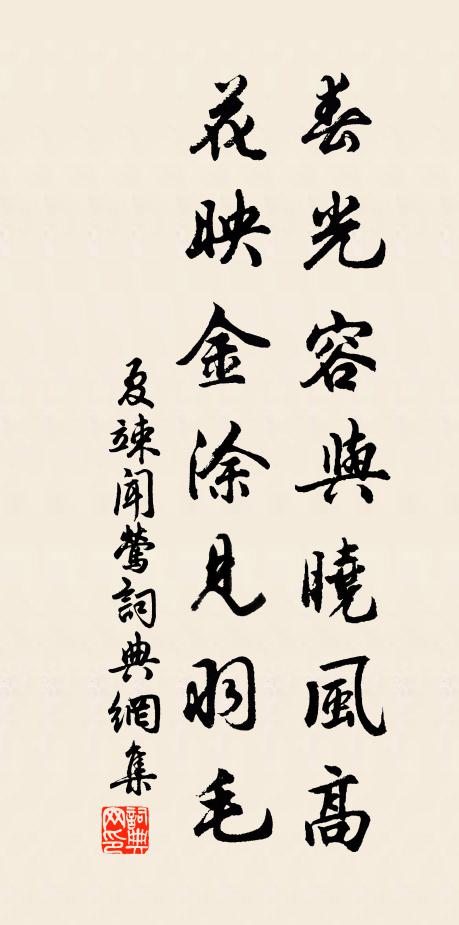 春光容與曉風高
花映金涂見羽毛
夏竦聞鶯詞典網集
詞典網印